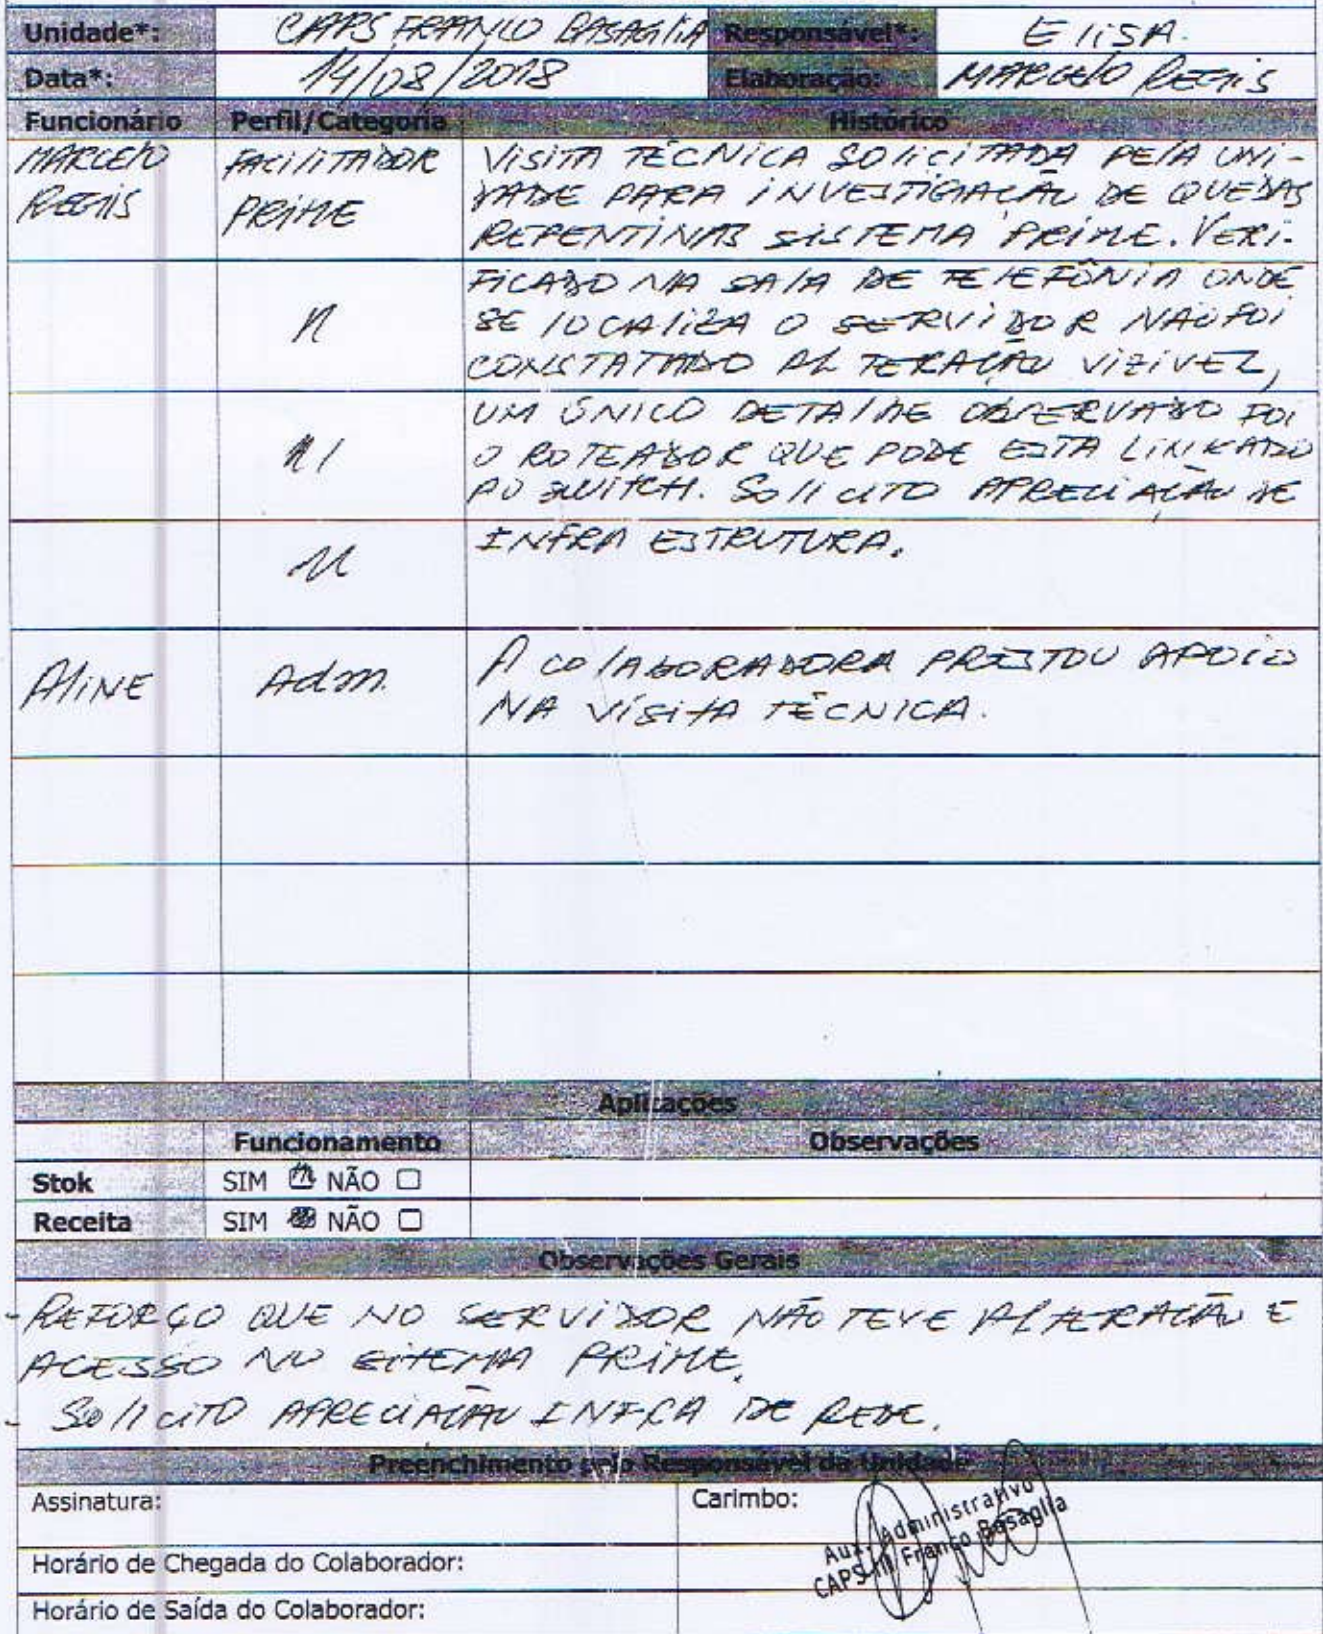 Unidade*: CAPS FRANCO BASAGLIA Responsável*: ElisA.
Data*: 14/08/2018 Elaboração: MARCElO REGIS
Funcionário Perfil/Categoria Histórico
MARCElO FACIlITADOR VISITA TÉCNICA SOlICITADA PElA UNI-
REGIS PRIME DADE PARA INVESTIGAÇÃO DE QUEDAS
REPENTINAS SISTEMA PRIME. VERI-
FICADO NA SAlA DE TElEFÔNIA ONDE
SE lOCAlIZA O SERVIDOR NÃO FOI
CONSTATADO ALTERAÇÃO VIZIVEL,
UM ÚNICO DETAlHE OBSERVADO FOI
O ROTEADOR QUE PODE ESTA LINKADO
AO SWITCH. SOlICITO APRECIAÇÃO DE
INFRA ESTRUTURA.
AlINE Adm. A COlABORADORA PRESTOU APOIO
NA VÍSITA TÉCNICA.
Aplicações
Funcionamento Observações
Stok SIM NÃO
Receita SIM NÃO
Observações Gerais
- REFORÇO QUE NO SERVIDOR NÃO TEVE ALTERAÇÃO E
ACESSO NO SITEMA PRIME.
- SOlICITO APRECIAÇÃO INFRA DE REDE.
Preenchimento pelo Responsável da Unidade
Assinatura: Carimbo:
Aux. Administrativo
CAPS III Franco Basaglia
Horário de Chegada do Colaborador:
Horário de Saída do Colaborador: